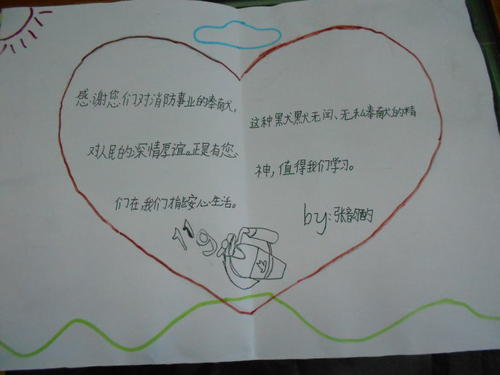 感谢您们对消防事业的奉献,
对人民的深情厚谊。正是有您
们在,我们才能安心生活。
这种默默无闻、无私奉献的精
神,值得我们学习。
by:张韵
119